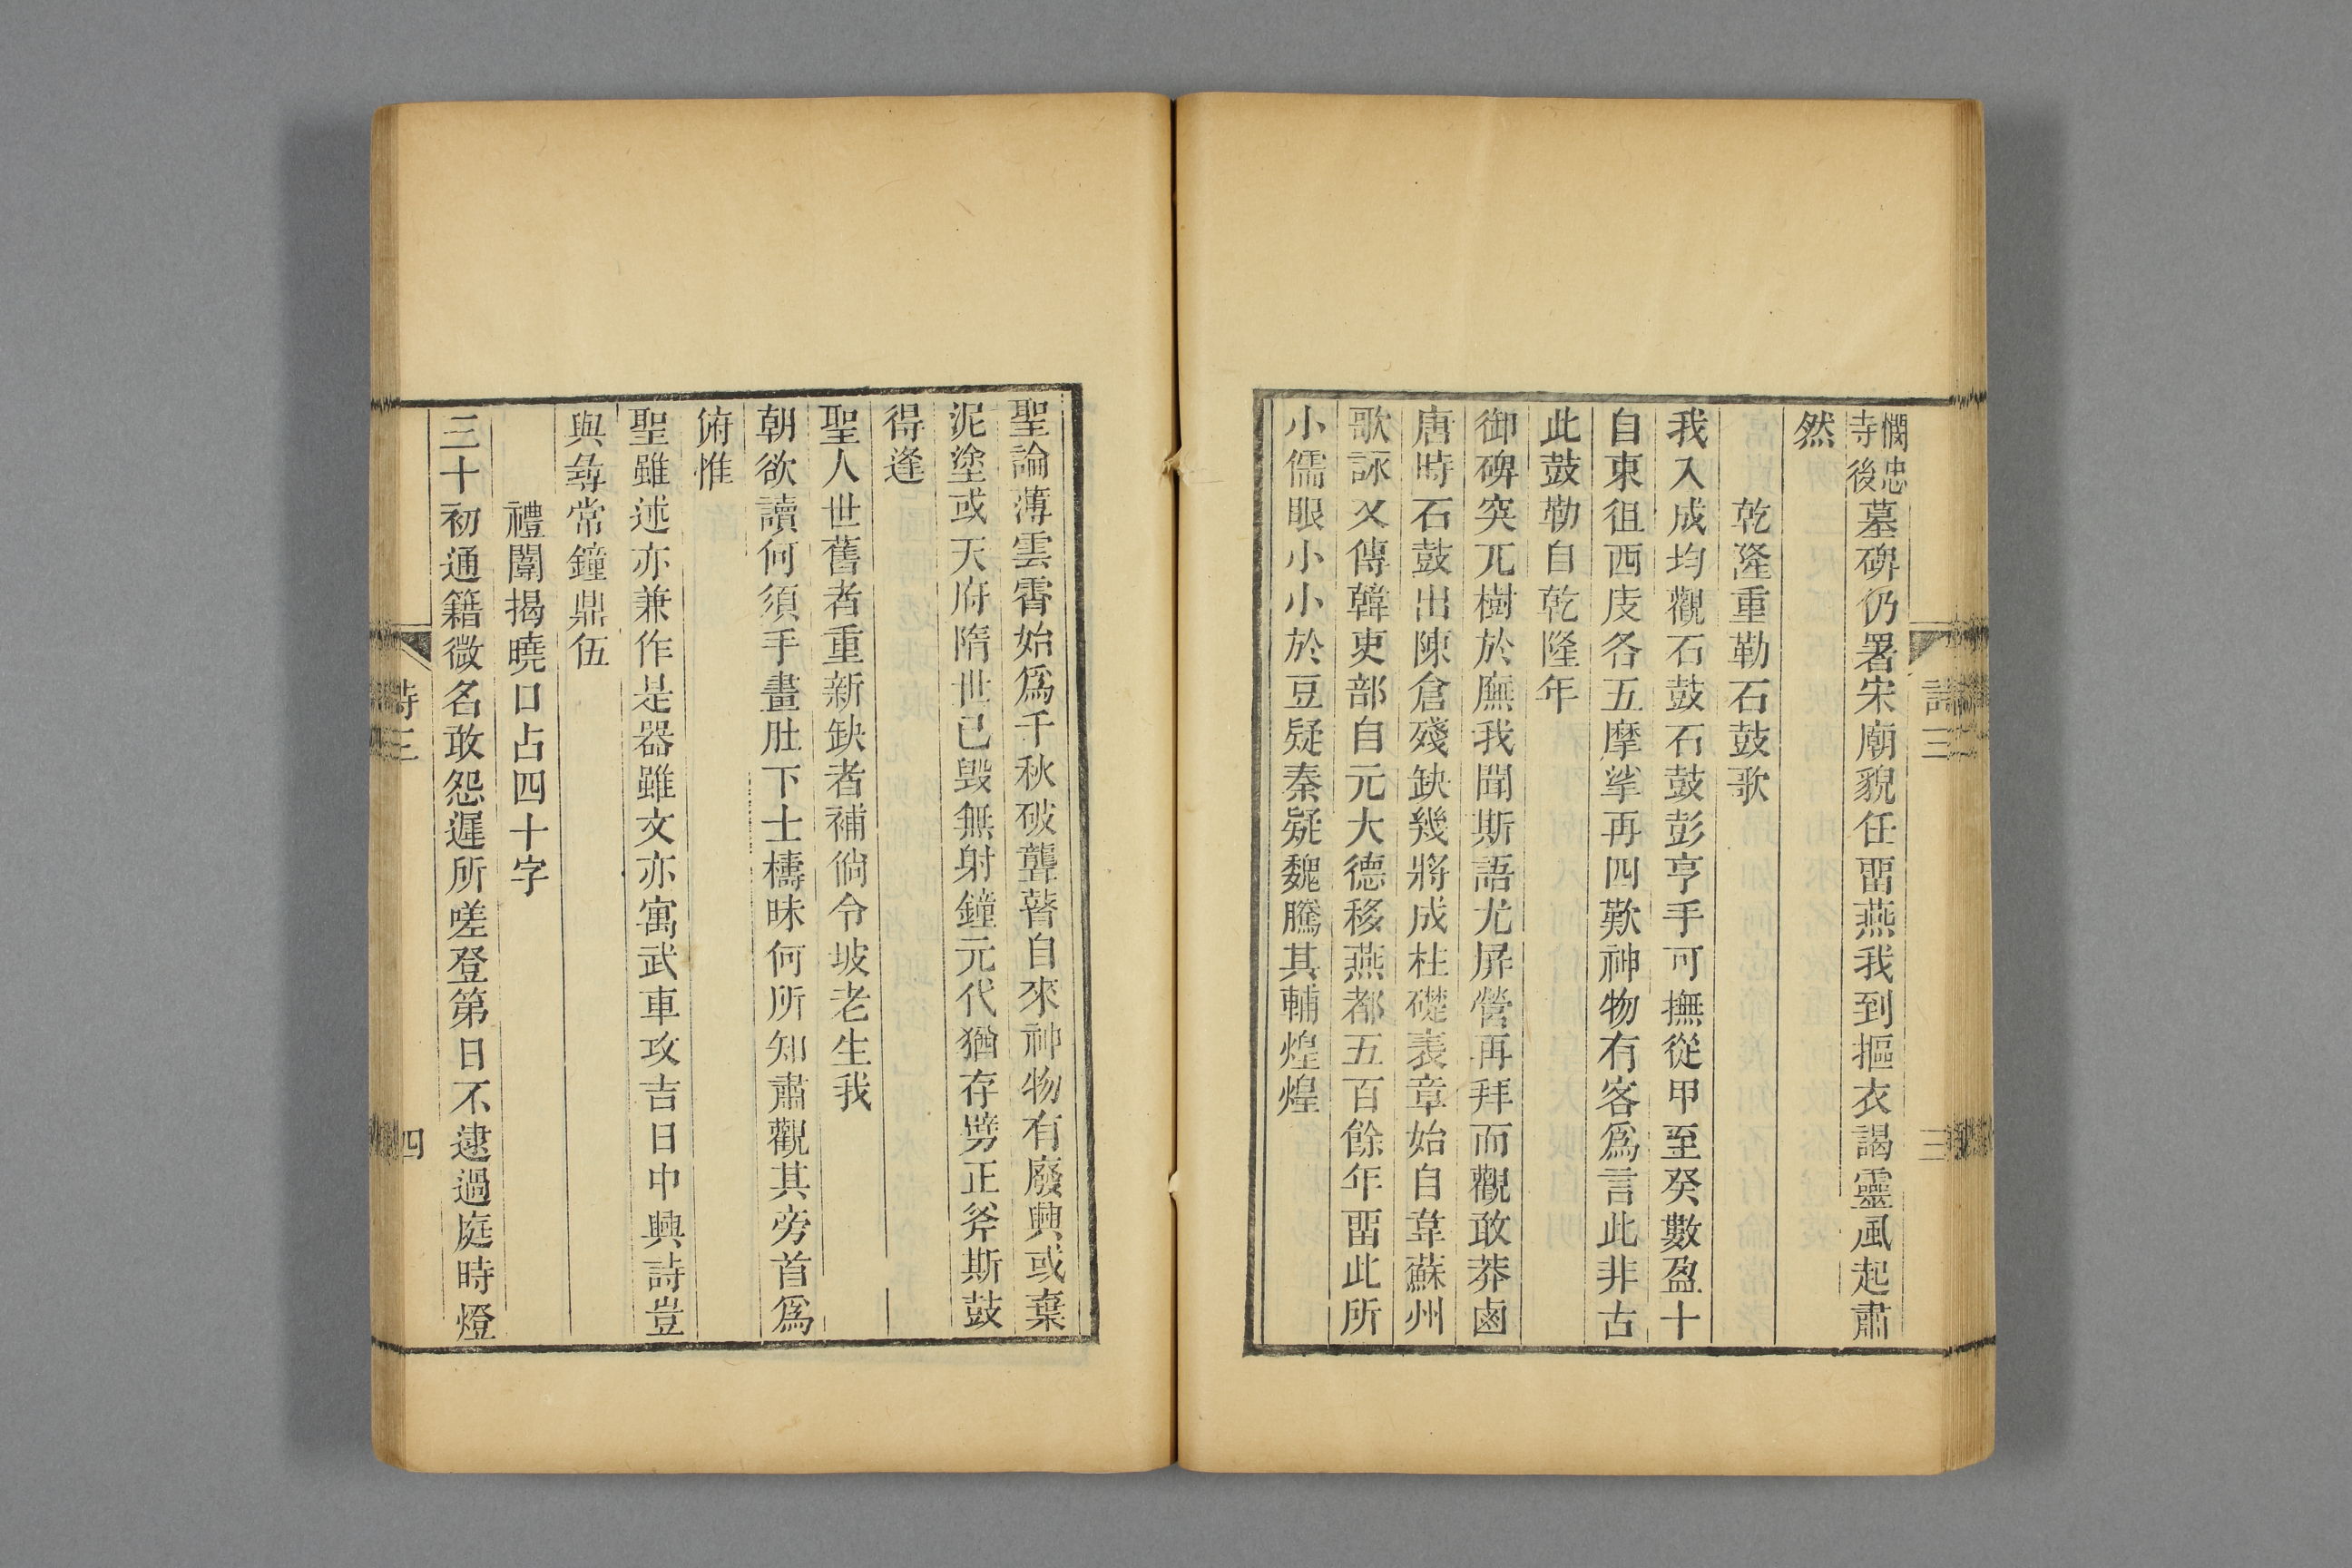 憫忠寺後墓碑仍署宋廟貌任畱燕我到摳衣謁靈風起肅
然
乾隆重勒石鼓歌
我入成均觀石鼓石鼓彭亨手可撫從甲至癸數盈十
自東徂西庋各五摩挲再四歎神物有客爲言此非古
此鼓勒自乾隆年
御碑突兀樹於廡我聞斯語尤屏營再拜而觀敢莽鹵
唐時石鼓出陳倉殘缺幾將成柱礎表章始自韋蘇州
歌詠又傳韓吏部自元大德移燕都五百餘年畱此所
小儒眼小小於豆疑秦疑魏騰其輔煌煌
詩三
三
聖論薄雲霄始爲千秋破聾瞽自來神物有廢興或棄
泥塗或天府隋世已毀無射鐘元代猶存劈正斧斯鼓
得逢
聖人世舊者重新缺者補倘令坡老生我
朝欲讀何須手畫肚下士檮昧何所知肅觀其旁首爲
俯惟
聖雖述亦兼作是器雖文亦寓武車攻吉日中興詩豈
與尋常鐘鼎伍
禮闈揭曉口占四十字
三十初通籍微名敢怨遲所嗟登第日不逮過庭時燈
詩三
四